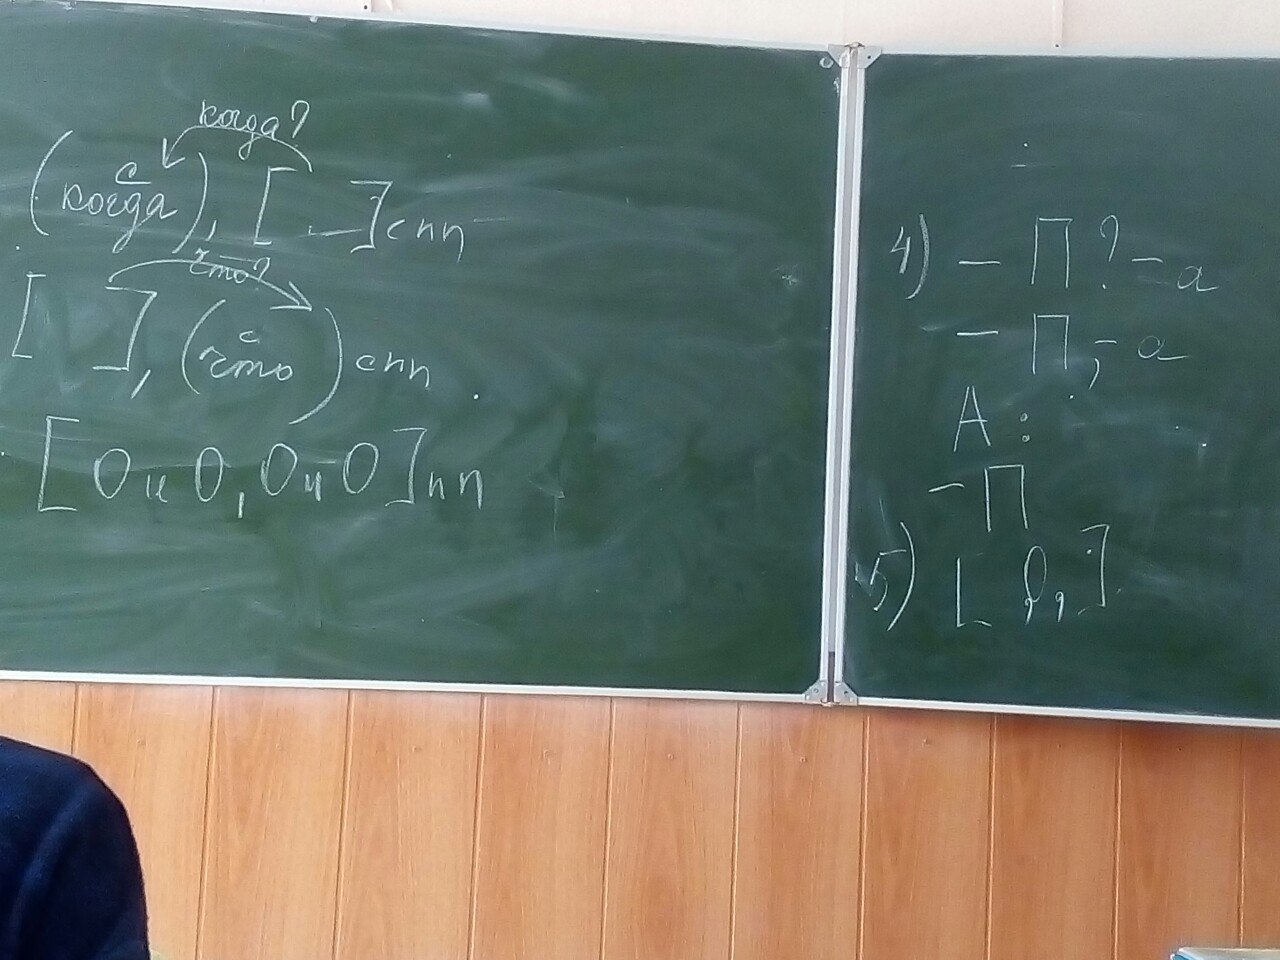 когда?
(когда), [ ] спп
что?
[ ], (что) спп
[О и О, О и О] пп
4) – П? – а
– П, – а
А:
– П
5) [ О, ].